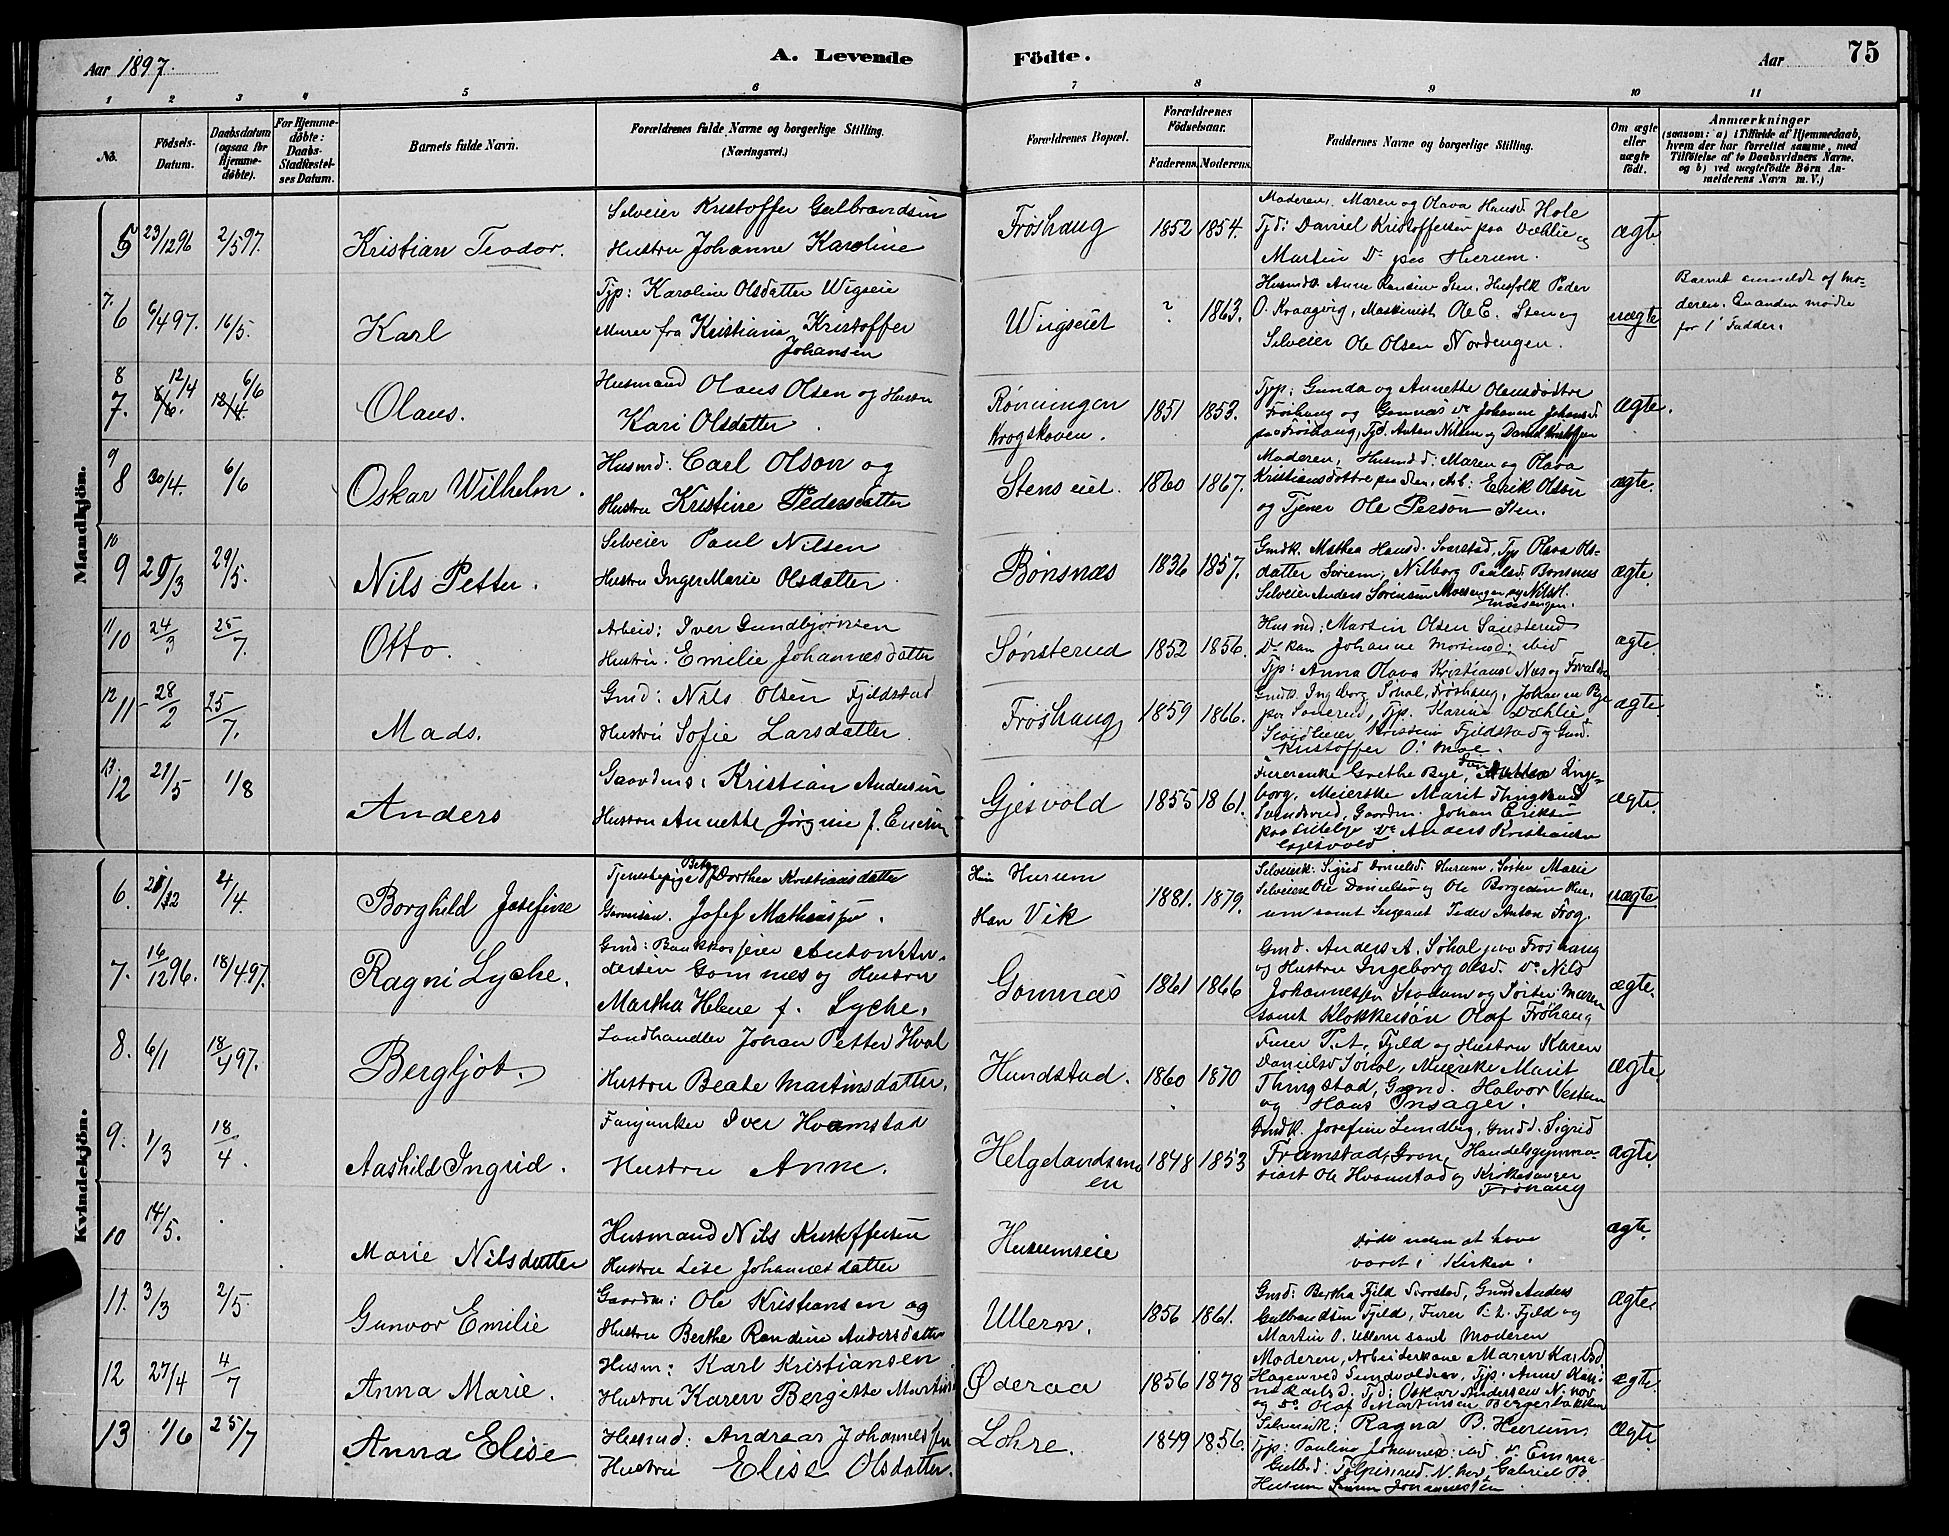 Aar 1897.
A. Levende
Födte.
Aar
75
1 2 3 4 5 6 7 8 9 10 11
No.
Födsels-
Datum.
Daabsdatum
(ogsaa for
Hjemme-
döbte).
For Hjemme-
döbte:
Daabs-
Stadfæstel-
ses Datum.
Barnets fulde Navn.
Forældrenes fulde Navne og borgerlige Stilling.
(Næringsvei.)
Forældrenes Bopæl.
Forældrenes
Födselsaar.
Faderens. Moderens.
Faddernes Navne og borgerlige Stilling.
Om ægte
eller
uægte
födt.
Anmærkninger
(saasom: a) i Tilfælde af Hjemmedaab,
hvem der har forrettet samme, med
Tilföielse af to Daabsvidners Navne,
og b) ved uægtefödte Börn An-
melderens Navn m. V.)
Mandkjön.
5 23/12 96 2/5 97. Kristian Teodor.
Selveier Kristoffer Gulbrandsen
Hustru Johanne Karoline
Frøshaug 1852 1854.
Moderen, Maren og Olava Hansd. Hole
Tjd: Daniel Kristoffersen paa Dæhlie og
Martin Do paa Hurum.
ægte.
7. 6 6/4 97. 16/5. Karl
Tjp: Karoline Olsdatter Wigseie
Murer fra Kristiania, Kristoffer
Johansen
Wiigseiet ? 1863.
Husmdk Anne Ransine Sten, Husfolk Peder
O. Kraagvig, Maskinist Ole E. Sten og
Selveier Ole Olsen Nordengen.
uægte
Barnet anmeldt af Mo-
deren. En anden mødte
for 1 Fadder.
8 7. 12/4 6/6 Olaus.
Husmand Olaus Olsen og Hustru
Kari Olsdatter.
Rønningen
Krogskoven.
1851 1853.
Tjp: Gunda og Annette Olausdøttre
Frøshaug og Gomnæs, Do Johanne Johansd.
paa Frøshaug, Tjd. Anton Nilsen og Daniel Kristoffersen
ægte.
9 8 30/4. 6/6 Oskar Wilhelm.
Husmd: Carl Olson og
Hustru Kristine Pedersdatter
Stenseiet. 1860 1867.
Moderen, Husmd d. Maren og Olava
Kristiansdøttre paa Sten, Arb: Erik Olson
og Tjener Ole Person Sten.
ægte.
10 9 29/3 29/5. Nils Petter.
Selveier Paul Nilsen
Hustru Inger Marie Olsdatter.
Bønsnæs 1836 1857.
Gmdk. Mathea Hansd. Svarstad, Tjp Olava Ols-
datter Sørum, Nilborg Paulsd. Bønsnæs
Selveier Anders Sørensen Moesengen og Nils H.
Moesengen.
ægte.
11 10 24/3 25/7. Otto.
Arbeid: Iver Gundbjørnsen
Hustru: Emilie Johannesdatter
Sønsterud 1852 1856.
Husmd: Martin Olsen Sønsterud
Do kon Johanne Mortensd: ibid
Tjp: Anna Olava Kristiansd Næs og Forældre
ægte.
12 11 28/2 25/7. Mads.
Gmd: Nils Olsen Fjeldstad
Hustru Sofie Larsdatter.
Frøshaug 1859 1866.
Gmdk. Ingeborg Søhol, Frøshaug, Johanne Bye
paa Sonerud, Tjp. Karine Dæhlie,
Fjeldstad og Gmd.
Kristoffer O. Moe.
ægte.
13. 12 21/5 1/8 Anders
Gaardms: Kristian Andersen
Hustru Annette Jørgine f. Erichsen
Gjesvold 1855 1861.
Furerenke Grethe Bye, Inge-
borg, Meierske Marit Thingstad
Svendsrud, Gaardm. Johan Eriksen
paa Do Anders Kristiansen
Gjesvold.
ægte.
Kvindekjön.
6. 21/12 4/4. Borghild Josefine
Tjenestepige Dorthea Kristiansdatter
Garvesen. Josef Mathiassen.
Hun Hurum
Han Vik
1881. 1879.
Selveierk: Sigrid Danielsd. Hurum, Søster Marie
Selveiere Ole Danielsen og Ole Borgersen Hur-
um samt Sergeant Peder Anton Frog.
uægte
7. 16/12 96. 18/4 97. Ragni Lyche.
Gmd: Bankkasserer Anton An-
dersen Gomnæs og Hustru
Martha Helene f. Lyche.
Gomnæs 1861 1866
Gmd. Anders A. Søhol paa Frøshaug
og Hustru Ingeborg Olsd. Do Nils
Johannessen Stadum og Søster Maren
samt Klokkersøn Olaf Frøhaug
ægte.
8. 6/1 18/4 97. Bergljot.
Landhandler Johan Petter Hval
Hustru Beate Martinsdatter.
Hundstad. 1860 1870
Furer P. A. Fjeld og Hustru Karen
Danielsd Søhol, Meierske Marit
Thingstad, Gmd. Halvor Vestern
og Hans Onsager.
ægte.
9. 1/3 18/4. Aashild Ingrid.
Fanejunker Iver Hvamstad
Hustru Anne.
Helgelandsmo
en
1848 1853
Gmdk. Josefine Lundby, Gmd d. Sigrid
Framstad, Gran, Handelsgymna-
siast Ole Hvamstad og Kirkesanger
Frøhaug
ægte.
10 14/5. Marie Nilsdatter
Husmand Nils Kristoffersen
Hustru Lise Johannesdatter
Hurumseie
Døde uden at have
været i Kirken.
ægte.
11. 3/3 2/5. Gunvor Emilie
Gaardm: Ole Kristiansen og
Hustru Berthe Randine Andersdatter
Ullern. 1856 1861.
Gmd: Bertha Fjeld Svarstad, Gmd Anders
Gulbrandsen Fjeld, Furer P. A. Fjeld og
Martin O. Ullern samt Moderen
ægte.
12 27/4 4/7 Anna Marie.
Husm: Karl Kristiansen
Hustru Karen Bergitte Martins
Øderaa 1856 1878
Moderen, Arbeiderkone Maren Karlsd.
Hagen ved Sundvolden, Tjp: Anne Kari-
ne Karlsd. Tjd: Oskar Andersen N. hov
og Do Olaf Martinsen Bergerbakken
ægte.
13 1/6 25/7 Anna Elise.
Husmd: Andreas Johannessen
Hustru Elise Olsdatter.
Lohre. 1849 1856.
Selveierk: Ragna B. Hurum
Tjp: Pauline Johannesd. ibd Do Emma
Gulbd: N. hov, Gabriel B.
Hurum Johannessen.
ægte.